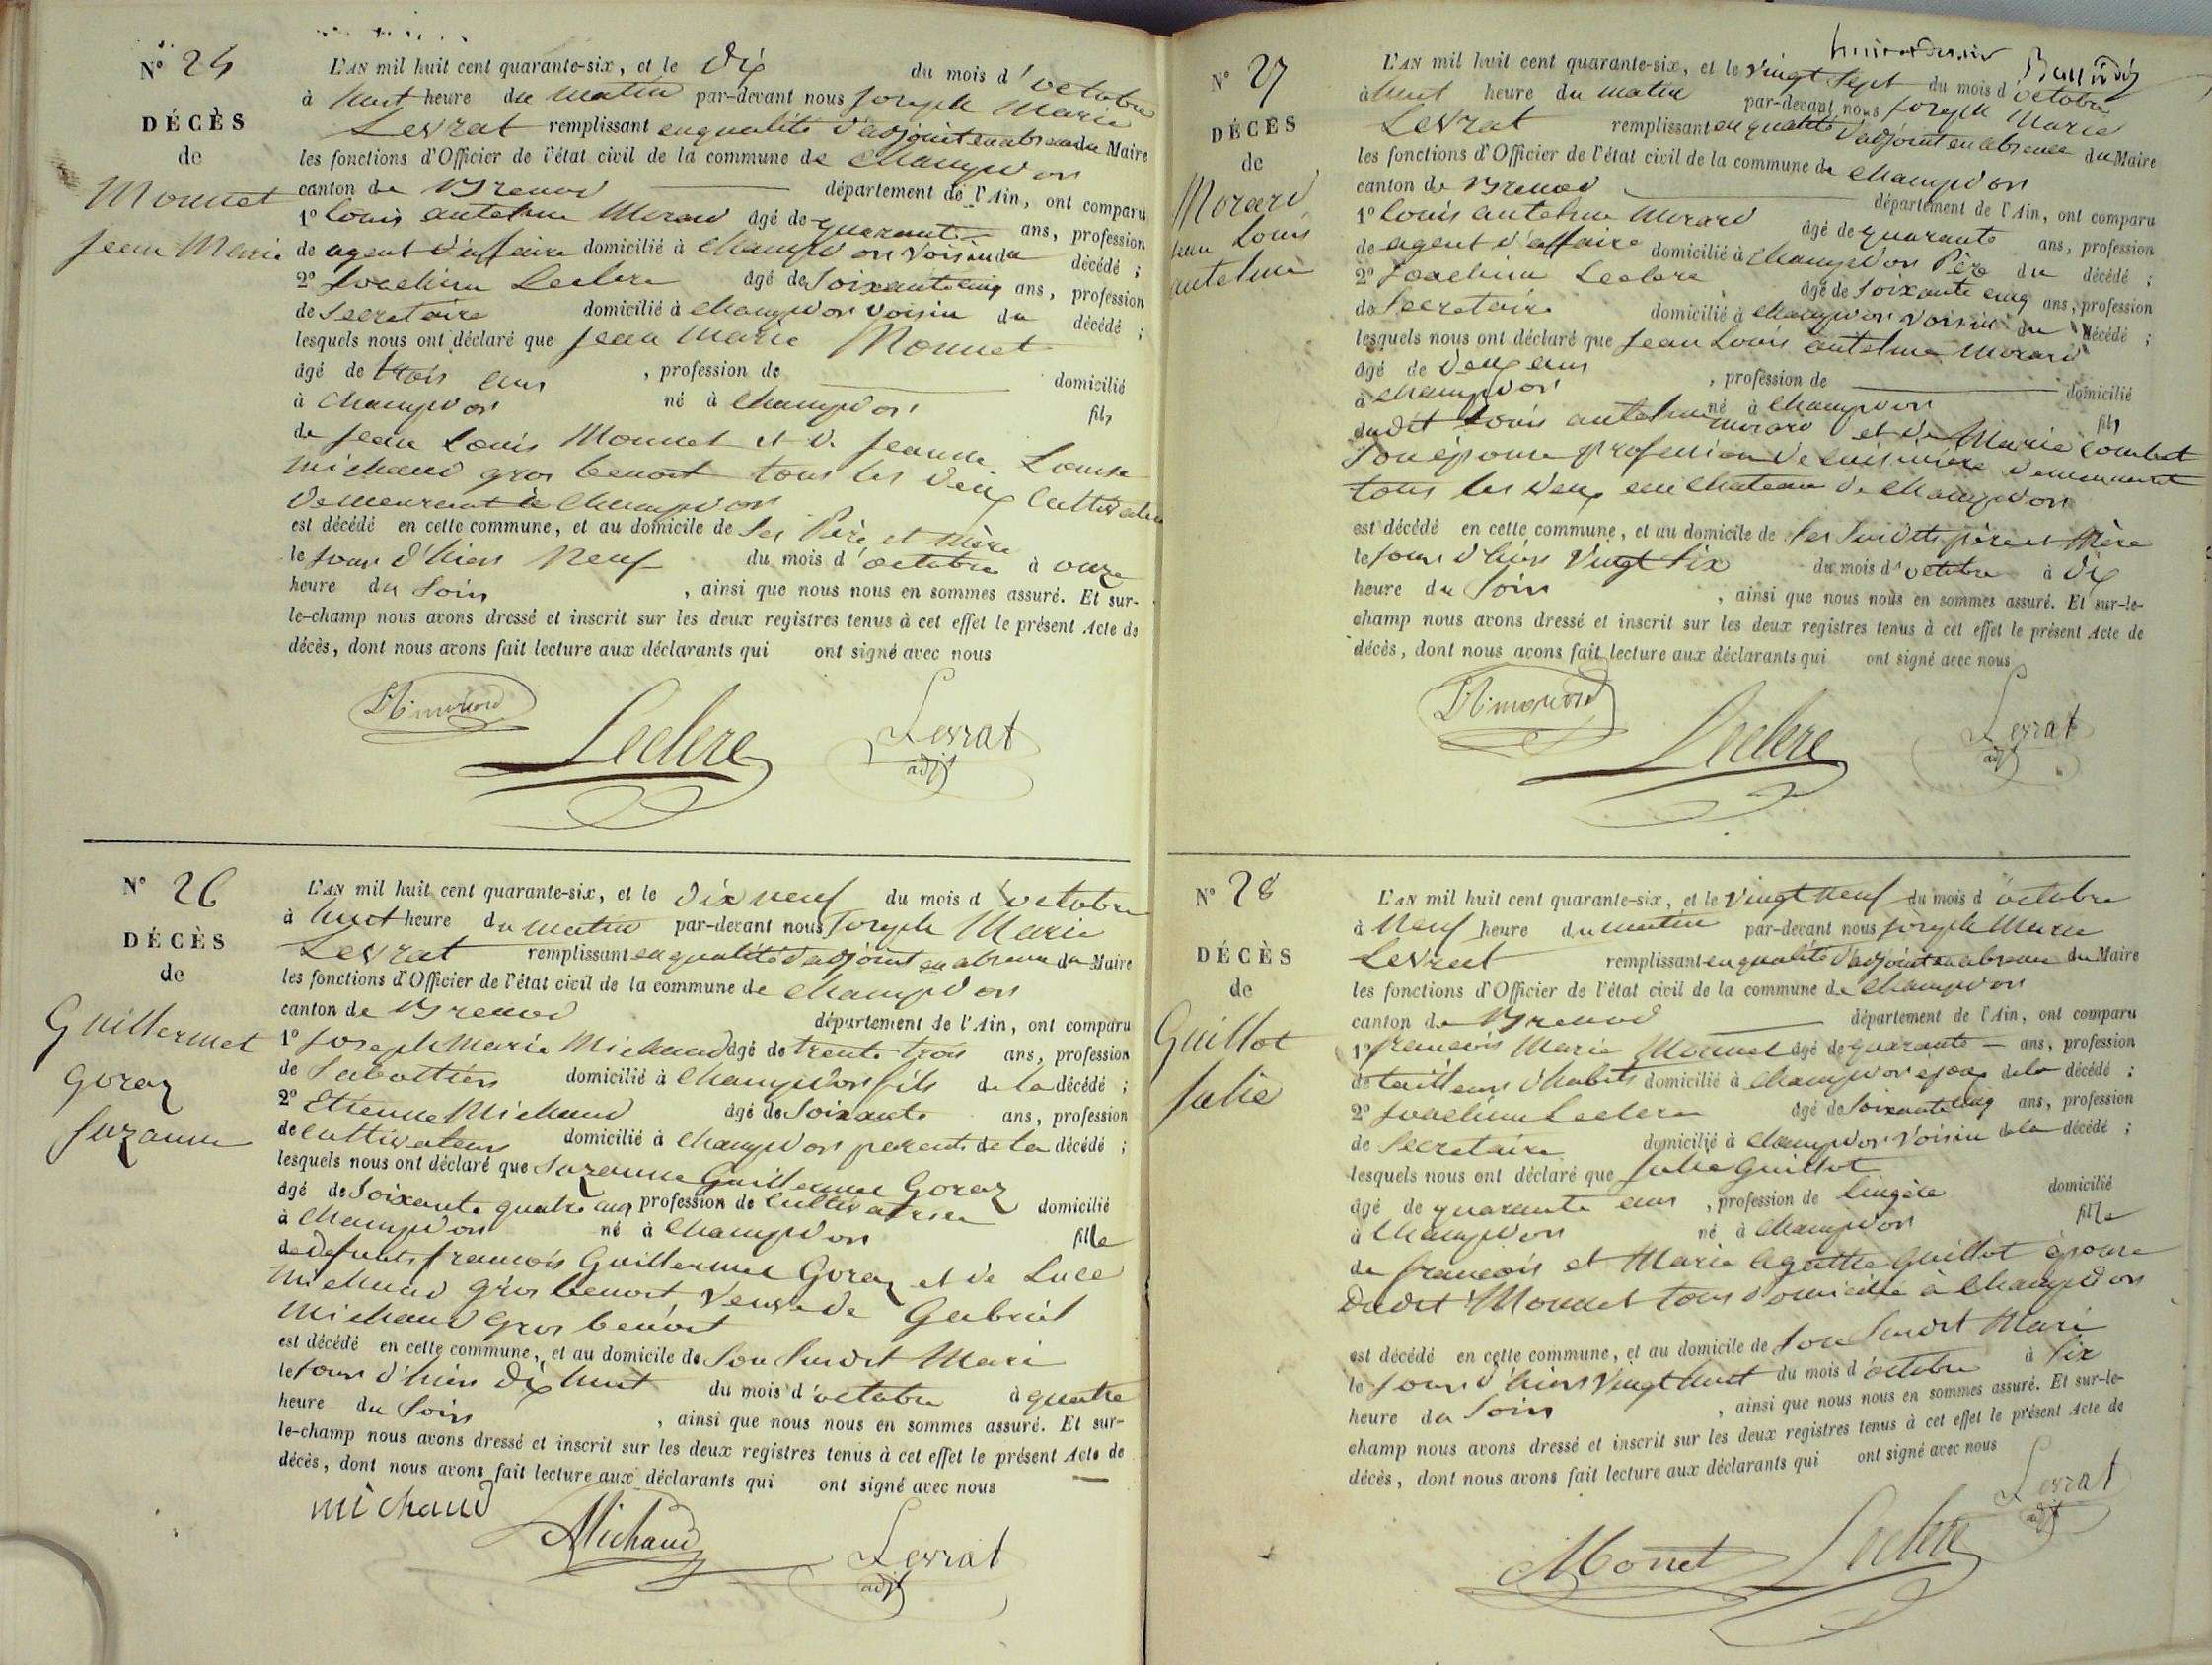 N° 25
DÉCÈS
de
Monnet
Jean Marie
L'AN mil huit cent quarante-six, et le Dix du mois d'octobre
à huit heure du matin par-devant nous Joseph Marie
Levrat remplissant en qualité d'adjoint en absence du Maire
les fonctions d'Officier de l'état civil de la commune de Champdor
canton de Brenod département de l'Ain, ont comparu
1° Louis antelme Morard âgé de quarante ans, profession
de agent d'affaire domicilié à Champdor voisin du décédé ;
2° Joachim Leclerc âgé de Soixante cinq ans, profession
de Secretaire domicilié à Champdor voisin du décédé ;
lesquels nous ont déclaré que Jean Marie Monnet
âgé de trois ans , profession de domicilié
à Champdor né à Champdor fils
de Jean Louis Monnet et de Jeanne Louise
Michaud gros benoit tous les deux Cultivateurs
Demeurant à Champdor
est décédé en cette commune, et au domicile de Ses Père et Mère
le Jour d'hier Neuf du mois d'octobre à onze
heure du Soir , ainsi que nous nous en sommes assuré. Et sur-
le-champ nous avons dressé et inscrit sur les deux registres tenus à cet effet le présent Acte de
décès, dont nous avons fait lecture aux déclarants qui ont signé avec nous
Leclerc Levrat
adjt
N° 26
DÉCÈS
de
Guillermet
Goraz
Suzanne
L'AN mil huit cent quarante-six, et le Dix neuf du mois d'octobre
à huit heure du matin par-devant nous Joseph Marie
Levrat remplissant en qualité d'adjoint en absence du Maire
les fonctions d'Officier de l'état civil de la commune de Champdor
canton de Brenod département de l'Ain, ont comparu
1° Joseph Marie Michaud âgé de trente trois ans, profession
de Sabottier domicilié à Champdor fils de la décédé ;
2° Etienne Michaud âgé de Soixante ans, profession
de cultivateur domicilié à Champdor parent de la décédé ;
lesquels nous ont déclaré que Suzanne Guillermet Goraz
âgé de Soixante quatre ans profession de Cultivatrice domicilié
à Champdor né à Champdor fille
de defunts francois Guillermet Goraz et de Luce
Michaud gros benoit Veuve de Gabriel
Michaud gros benoit
est décédé en cette commune, et au domicile de Son Susdit Mari
le Jour d'hier Dix huit du mois d'octobre à quatre
heure du Soir , ainsi que nous nous en sommes assuré. Et sur-
le-champ nous avons dressé et inscrit sur les deux registres tenus à cet effet le présent Acte de
décès, dont nous avons fait lecture aux déclarants qui ont signé avec nous
michaud Michaud Levrat
adjt
N° 27
DÉCÈS
de
Morard
Jean Louis
antelme
L'AN mil huit cent quarante-six, et le Vingt Sept du mois d'octobre
à huit heure du matin par-devant nous Joseph Marie
Levrat remplissant en qualité d'adjoint en absence du Maire
les fonctions d'Officier de l'état civil de la commune de Champdor
canton de Brenod département de l'Ain, ont comparu
1° Louis antelme Morard âgé de quarante ans, profession
de agent d'affaire domicilié à Champdor Père du décédé ;
2° Joachim Leclerc âgé de Soixante cinq ans, profession
de Secretaire domicilié à Champdor voisin du décédé ;
lesquels nous ont déclaré que Jean Louis antelme Morard
âgé de Deux ans , profession de domicilié
à Champdor né à Champdor fils
dudit Louis antelme Morard et de Marie Combet
Son épouse profession de cuisinière demeurant
tous les deux au Chateau de Champdor
est décédé en cette commune, et au domicile de Ses Susdits père et Mère
le Jour d'hier Vingt Six du mois d'octobre à Dix
heure du Soir , ainsi que nous nous en sommes assuré. Et sur-le-
champ nous avons dressé et inscrit sur les deux registres tenus à cet effet le présent Acte de
décès, dont nous avons fait lecture aux déclarants qui ont signé avec nous
Leclerc Levrat
adjt
N° 28
DÉCÈS
de
Guillot
Julie
L'AN mil huit cent quarante-six, et le Vingt Neuf du mois d'octobre
à Neuf heure du matin par-devant nous Joseph Marie
Levrat remplissant en qualité d'adjoint en absence du Maire
les fonctions d'Officier de l'état civil de la commune de Champdor
canton de Brenod département de l'Ain, ont comparu
1° francois Marie Monnet âgé de quarante ans, profession
de tailleur d'habits domicilié à Champdor epoux de la décédé ;
2° Joachim Leclerc âgé de Soixante cinq ans, profession
de Secretaire domicilié à Champdor Voisin de la décédé ;
lesquels nous ont déclaré que Julie Guillot
âgé de quarante ans , profession de lingère domicilié
à Champdor né à Champdor fille
de francois et Marie Agathe Guillot épouse
Dudit Monnet tous domicilié à Champdor
est décédé en cette commune, et au domicile de Son Susdit Mari
le Jour d'hier Vingt huit du mois d'octobre à Six
heure du Soir , ainsi que nous nous en sommes assuré. Et sur-le-
champ nous avons dressé et inscrit sur les deux registres tenus à cet effet le présent Acte de
décès, dont nous avons fait lecture aux déclarants qui ont signé avec nous
Monnet Leclerc Levrat
adjt